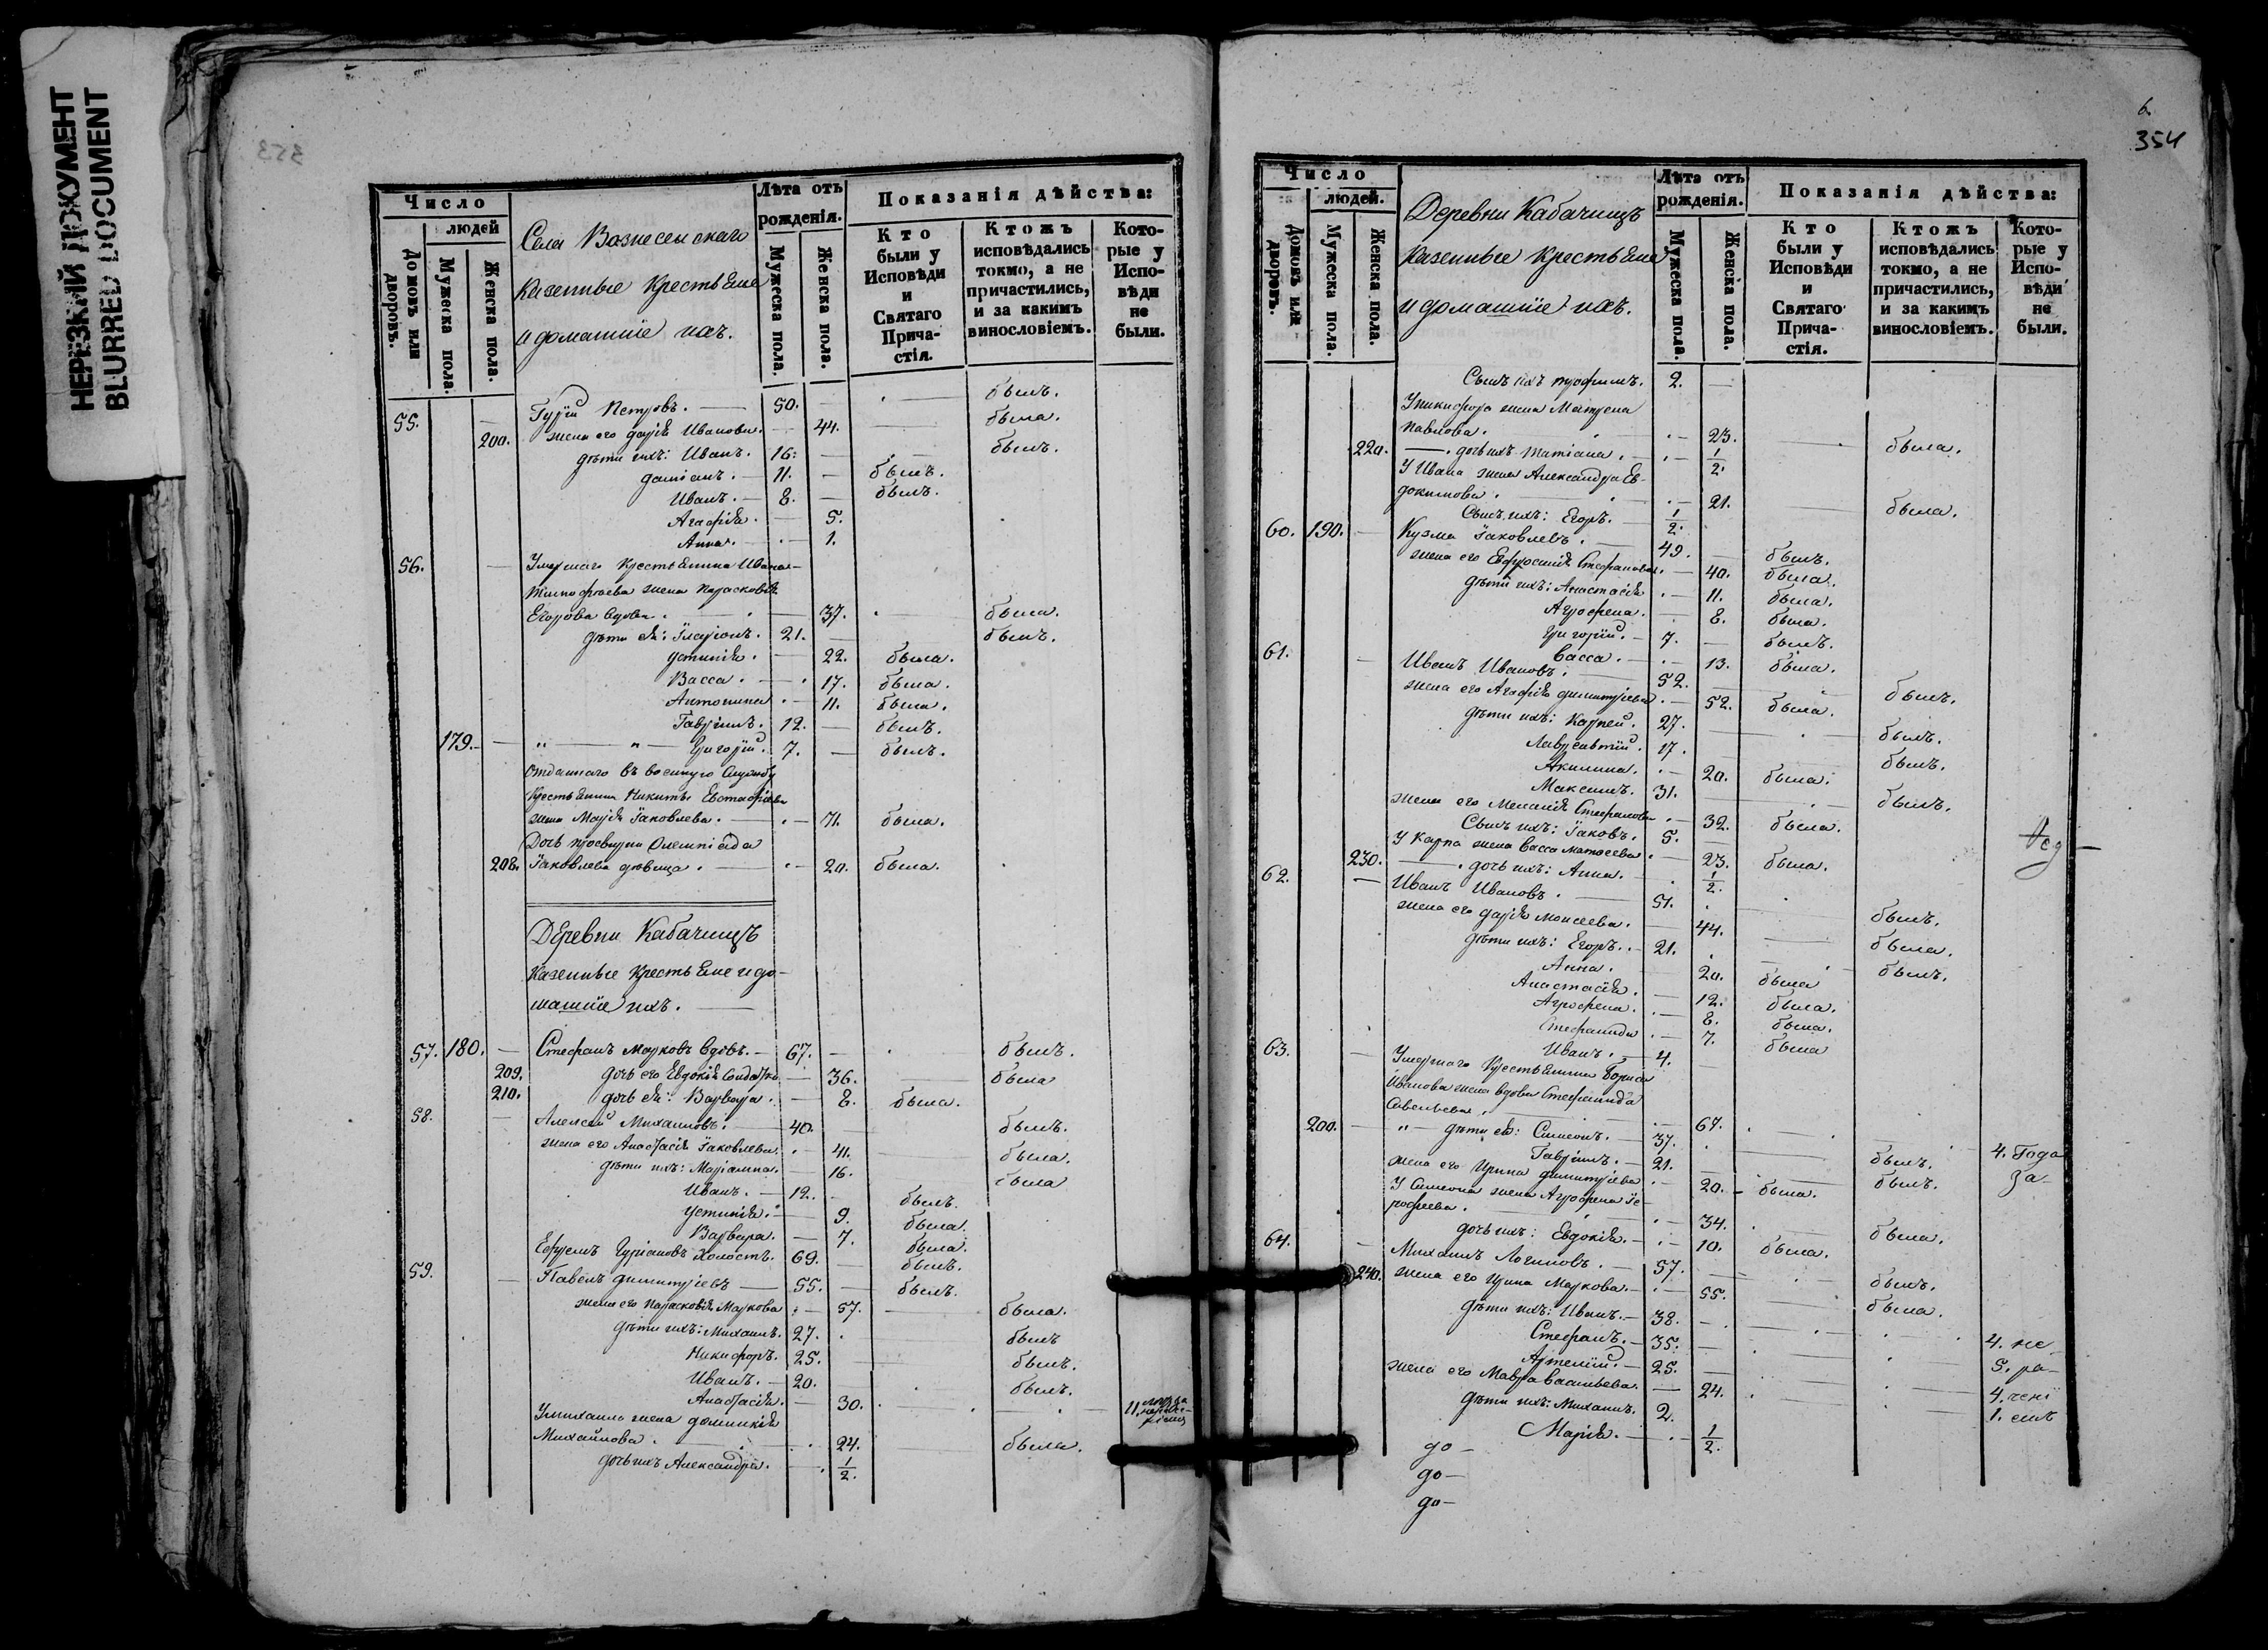 НЕРЕЗКИЙ ДОКУМЕНТ
BLURRED DOCUMENT
353
Число
людей
Домовъ или дворовъ.
Мужеска пола.
Женска пола.
Села Вознесенскаго
казенные крестьяне
и домашніе ихъ.
Лѣта отъ рожденія.
Мужеска пола.
Женска пола.
Показанія дѣйства:
Кто были у Исповѣди и Святаго Прича- стія.
Ктожъ исповѣдались токмо, а не причастились, и за какимъ винословіемъ.
Кото- рые у Испо- вѣди не были.
55. Гурій Петровъ. 50. былъ.
200. жена его Дарія Иванова. 44. была.
дѣти ихъ: Иванъ. 16. былъ.
Даміанъ. 11. былъ.
Иванъ. 8. былъ.
Агафія. 5.
Анна. 1.
56. Умершаго крестьянина Ивана
Тимофѣева жена Парасковія
Егорова вдова. 37. была.
дѣти ея: Иларіонъ. 21. былъ.
Устинія. 22. была.
Васса. 17. была.
Антонина 11. была.
Гавріилъ. 12. былъ.
179. „ — „ — Григорій. 7. былъ.
Отданнаго въ военную службу
крестьянина Никиты Евстафіева
жена Марія Іаковлева. 71. была.
Дочь просвирни Олимпіада
208. Іаковлева дѣвица. 20. была.
Деревни Кабачищъ
казенные крестьяне и до-
машніе ихъ.
57. 180. Стефанъ Марковъ вдовъ. 67. былъ.
209. дочь его Евдокія солдатка 36. была
210. дочь ея: Варвара. 8. была.
58. Алексѣй Михаиловъ. 40. былъ.
жена его Анастасія Іаковлева. 41. была.
дѣти ихъ: Маріамна. 16. была
Иванъ. 12. былъ.
Устинія. 9. была.
Варвара. 7. была.
Ефремъ Гуріановъ холостъ. 69. былъ.
59. Павелъ Димитріевъ 55. былъ.
жена его Парасковія Маркова 57. была.
дѣти ихъ: Михаилъ. 27. былъ
Никифоръ. 25. былъ.
Иванъ. 20. былъ.
Анастасія. 30. 11.
У Михаила жена Домникія
Михайлова. 24. была.
дочь ихъ Александра. 1/2.
6
354
Число
людей.
Домовъ или дворовъ.
Мужеска пола.
Женска пола.
Деревни Кабачищъ
казенные крестьяне
и домашніе ихъ.
Лѣта отъ рожденія.
Мужеска пола.
Женска пола.
Показанія дѣйства:
Кто были у Исповѣди и Святаго Прича- стія.
Ктожъ исповѣдались токмо, а не причастились, и за какимъ винословіемъ.
Кото- рые у Испо- вѣди не были.
Сынъ ихъ Трофимъ. 2.
У Никифора жена Матрена
Павлова. 23. была.
220. дочь ихъ Татіана. 1/2.
У Ивана жена Александра Ев-
докимова. 21. была.
Сынъ ихъ: Егоръ. 1/2.
60. 190. Кузма Іаковлевъ. 49. былъ.
жена его Евфросинія Стефанова. 40. была.
дѣти ихъ: Анастасія 11. была.
Агрофена. 8. была.
Григорій. 7. былъ.
Васса. 13. была.
61. Иванъ Ивановъ. 52. былъ.
жена его Агафія Димитріева 52. была.
дѣти ихъ: Карпъ. 27. былъ.
Лаврентій. 17. былъ.
Акилина. 20. была.
Максимъ. 31. былъ.
жена его Меланія Стефанова 32. была.
Сынъ ихъ: Іаковъ. 5.
У Карпа жена Васса Матѳеева 23. была.
230. дочь ихъ: Анна. 1/2.
62. Иванъ Ивановъ. 51. былъ.
жена его Дарія Моисеева. 44. была.
дѣти ихъ: Егоръ. 21. былъ.
Анна. 20. была
Анастасія. 12. была.
Агрофена. 8. была.
Стефанида 7. была
Иванъ. 4.
63. Умершаго крестьянина Бориса
Иванова жена вдова Стефанида
Савельева. 67.
200. „ — дѣти ея: Симеонъ. 37. 4. Года
Гавріилъ. 21. былъ. За
жена его Ирина Димитріева 20. была. былъ.
У Симеона жена Агрофена Іе-
рофеева. 34. была.
дочь ихъ: Евдокія. 10. была.
64. Михаилъ Логиновъ. 57. былъ.
240. жена его Ирина Маркова. 55. была.
дѣти ихъ: Иванъ. 38. 4. не
Стефанъ. 35. 5. ра-
Артемій. 25. 4. чені
жена его Мавра Васильева. 24. 1. емъ
дѣти ихъ: Михаилъ. 2.
Марія. 1/2.
до-
до-
до-